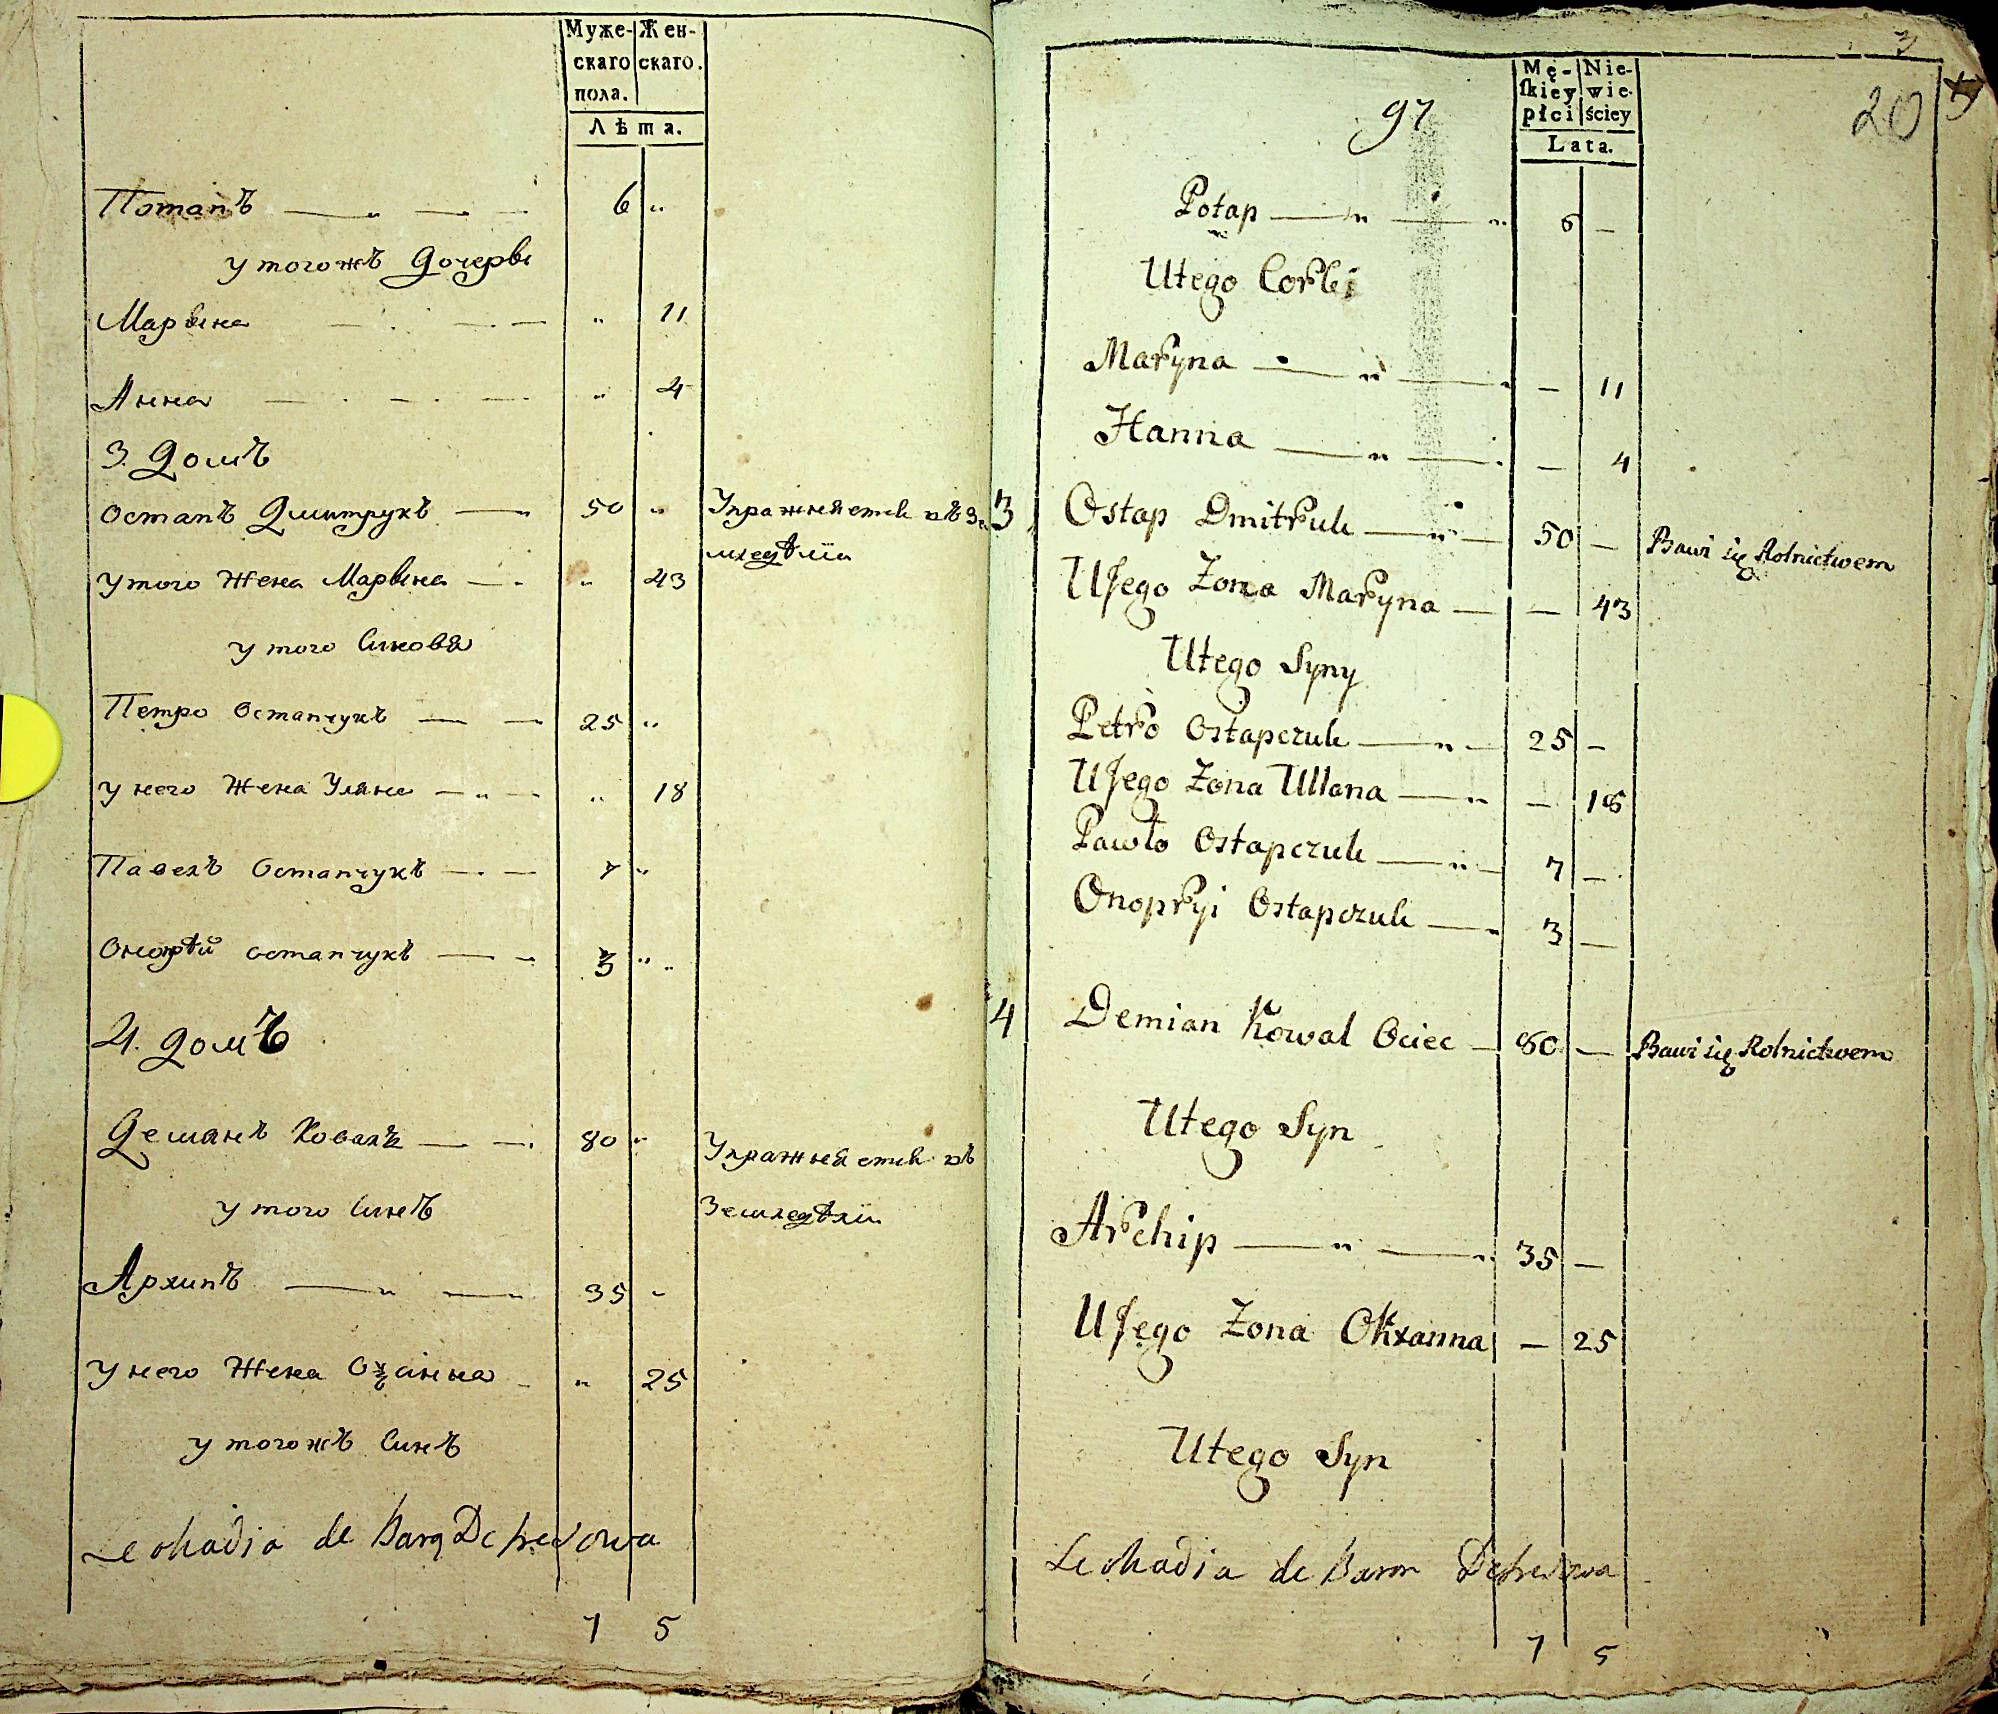 Муже- Жен-
скаго скаго.
пола.
Лѣта.
Потапъ 6 „
у тогожъ Дочеры
Марына „ 11
Анна „ 4
3. Домъ
Остапъ Дмитрукъ 50 „ Упражняется въ Зе
мледѣлiи
у того Жена Марына „ 43
у того Синовя
Петро Остапчукъ 25 „
у него Жена Уляна „ 18
Павелъ Остапчукъ 7 „
остапчукъ 3 „
4. домъ
Демянъ Коваль 80 „ Упражняется въ
Земледѣлiи
у того Синъ
Архипъ 35 „
у него Жена „ 25
у тогожъ Синъ
Leokadia de
7 5
3
97
20
Mę- Nie-
ſkiey wie-
płci ściey
Lata.
Potap 6 —
Utego Corki
Maryna — 11
Hanna — 4
3 Ostap Dmitruk 50 — Bawi się Rolnictwem
Ujego Zona Maryna — 43
Utego Syny
Petro Ostapczuk 25 —
Ujego Zona Ullana — 18
Pawło Ostapczuk 7 —
Onopryi Ostapczuk 3 —
4 Demian Kowal Ociec 80 — Bawi się Rolnictwem
Utego Syn
Archip 35 —
Ujego Zona Oksanna — 25
Utego Syn
Leokadia de Baron
7 5